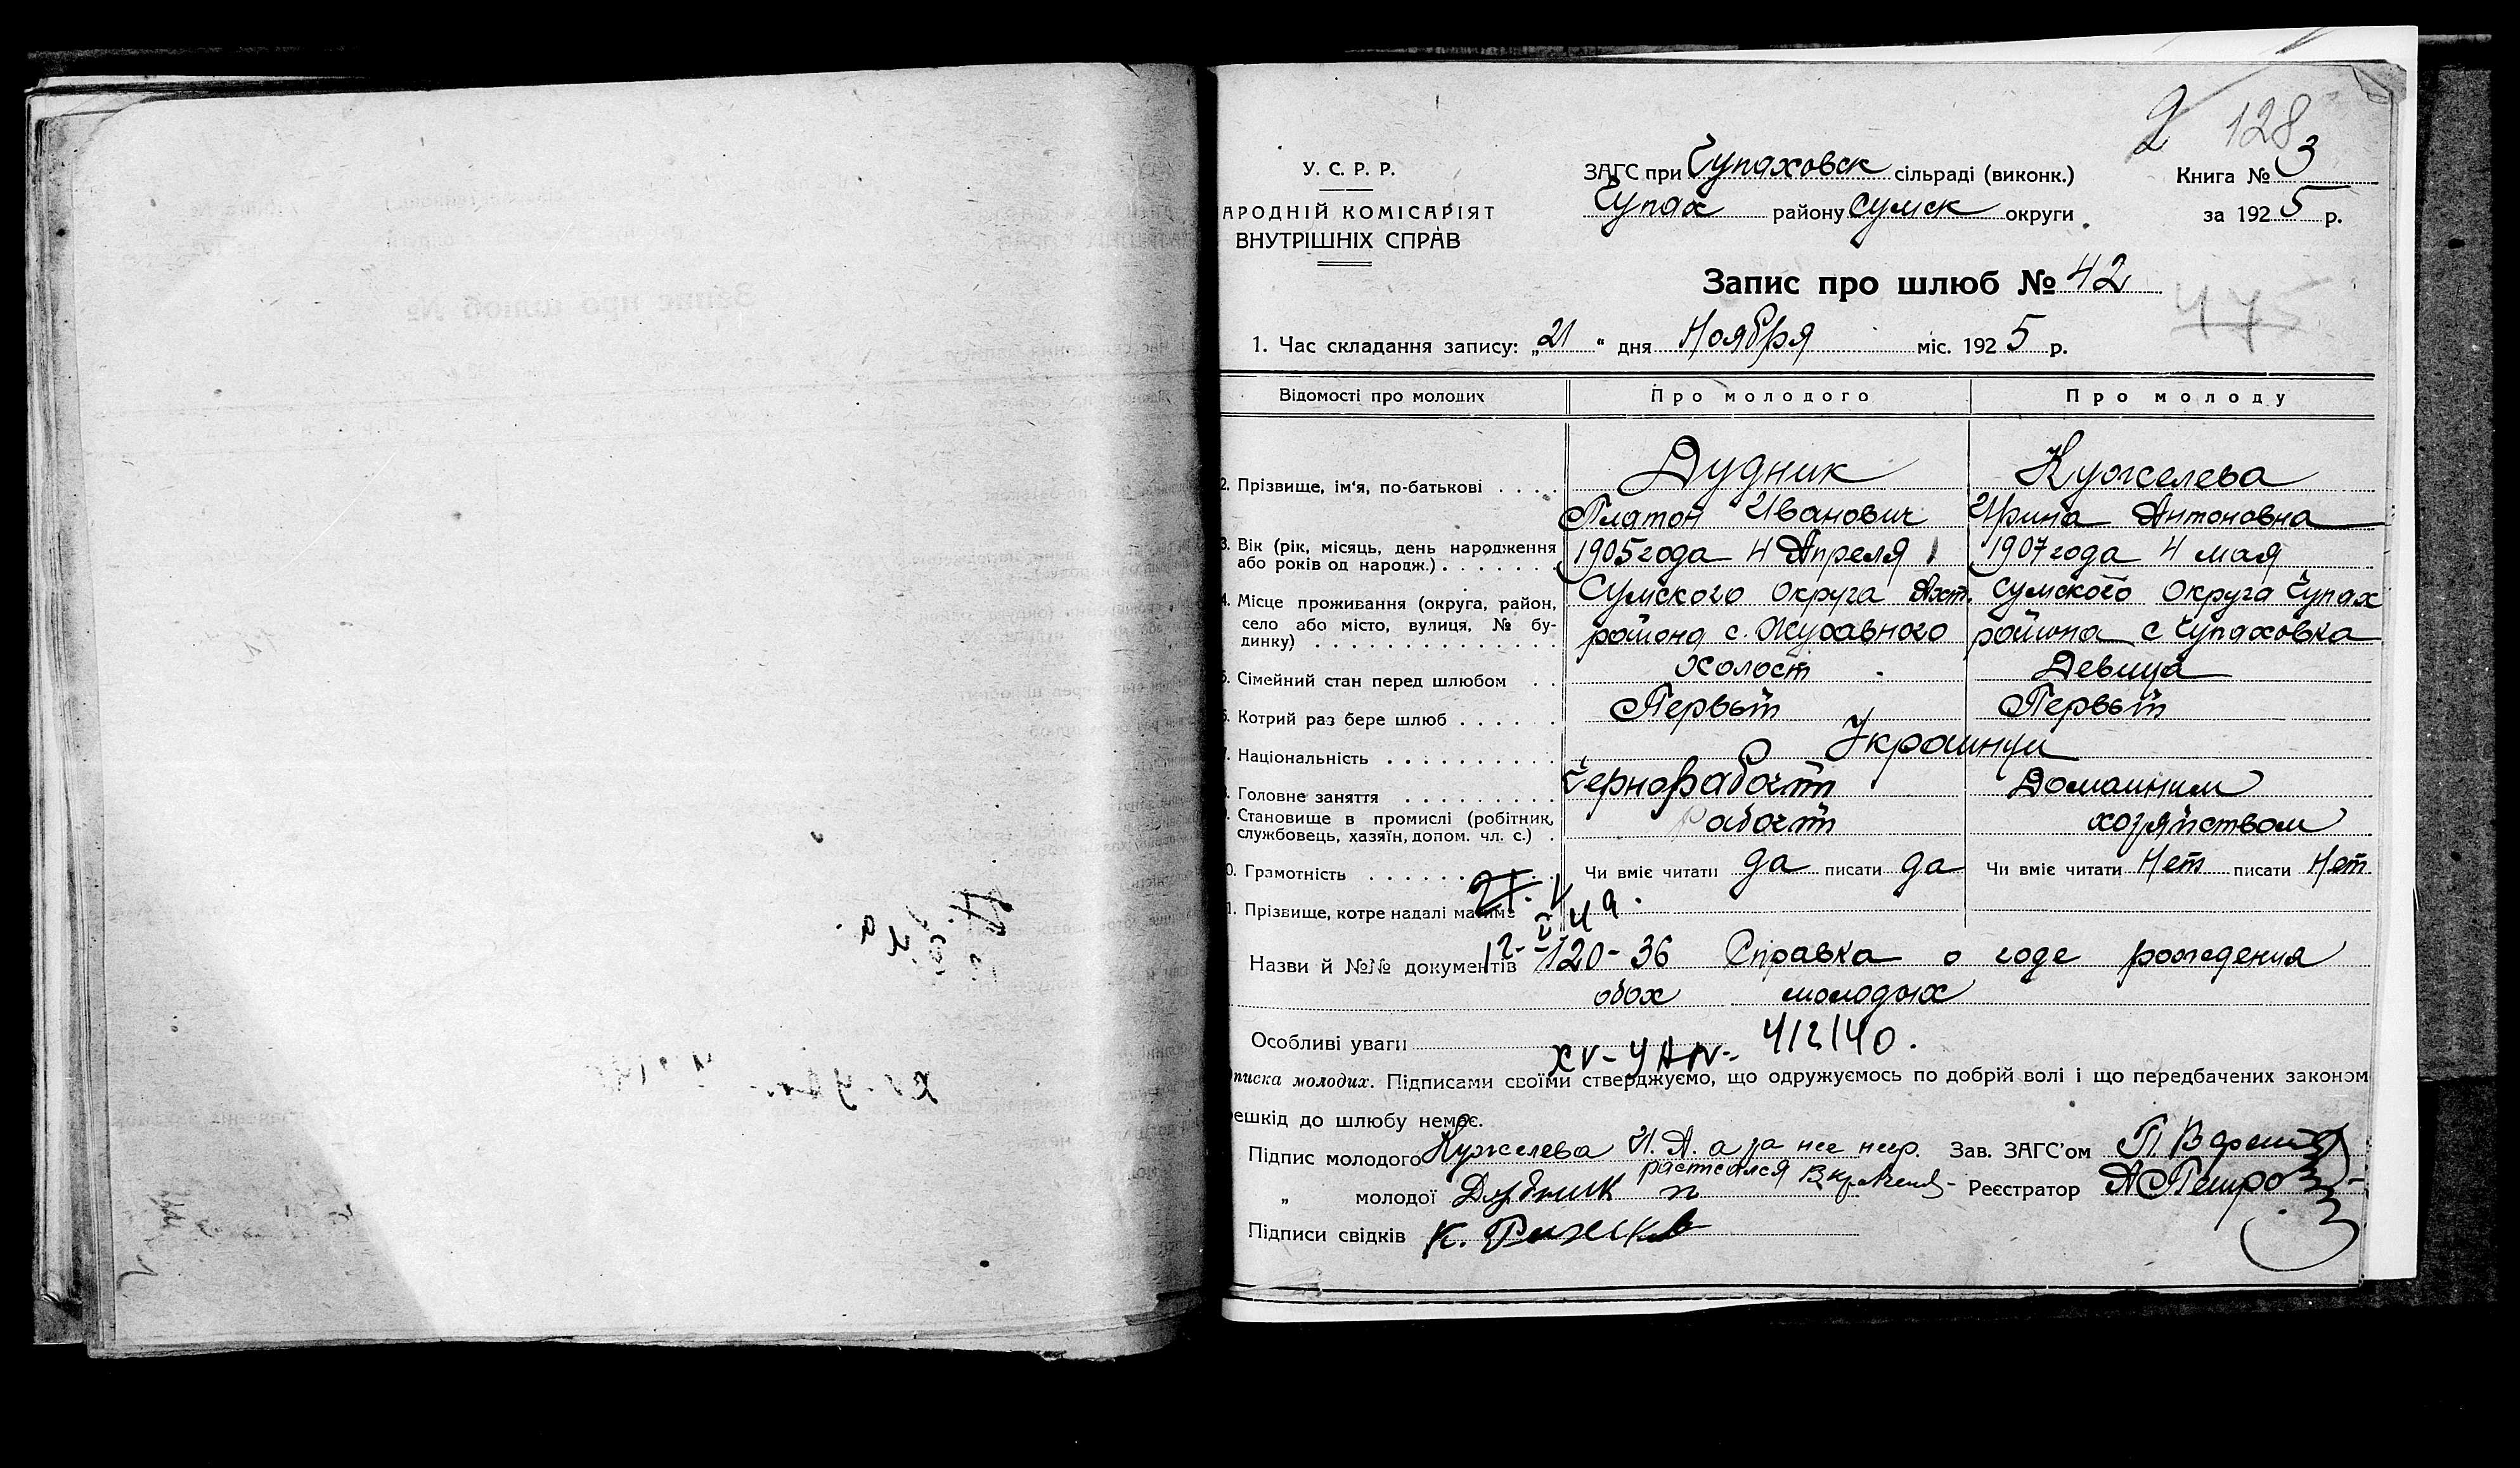 2 128
У. С. Р. Р.
АРОДНІЙ КОМІСАРІЯТ
ВНУТРІШНІХ СПРАВ
ЗАГС при Чупаховск сільраді (виконк.)
Чупах району Сумск округи
Книга № 3
за 1925 р.
Запис про шлюб № 42
445
1. Час складання запису: „21“ дня Ноября міс. 1925 р.
Відомості про молодих Про молодого Про молоду
2. Прізвище, ім'я, по-батькові . . . . Дудник Кужелева
Платон Иванович Ирина Антоновна
3. Вік (рік, місяць, день народження 1905 года 4 Апреля 1907 года 4 мая
або років од народж.) . . . . . . .
4. Місце проживання (округа, район, Сумского округа Ахт. Сумского Округа Чупах
село або місто, вулиця, № бу-
динку) . . . . . . . . . . . . . . района с. района с Чупаховка
5. Сімейний стан перед шлюбом . . холост Девица
6. Котрий раз бере шлюб . . . . . . Первый Первый
7. Національність . . . . . . . . . . Украинци
8. Головне заняття . . . . . . . . . Чернорабочий Домашним
9. Становище в промислі (робітник, рабочий хозяйством
службовець, хазяїн, допом. чл. с.) .
0. Грамотність . . . . . . . . . . . Чи вміє читати да писати да Чи вміє читати Нет писати Нет
1. Прізвище, котре надалі матиме
Назви й №№ документів 120-36 Справка о годе рождения
обох молодых
Особливі уваги
4/2/40.
писка молодих. Підписами своїми стверджуємо, що одружуємось по добрій волі і що передбачених законом
ешкід до шлюбу немає.
Підпис молодого Кужелева И. А. а за нее негр. Зав. ЗАГС'ом
„ молодої Дудник п Реєстратор
Підписи свідків К.